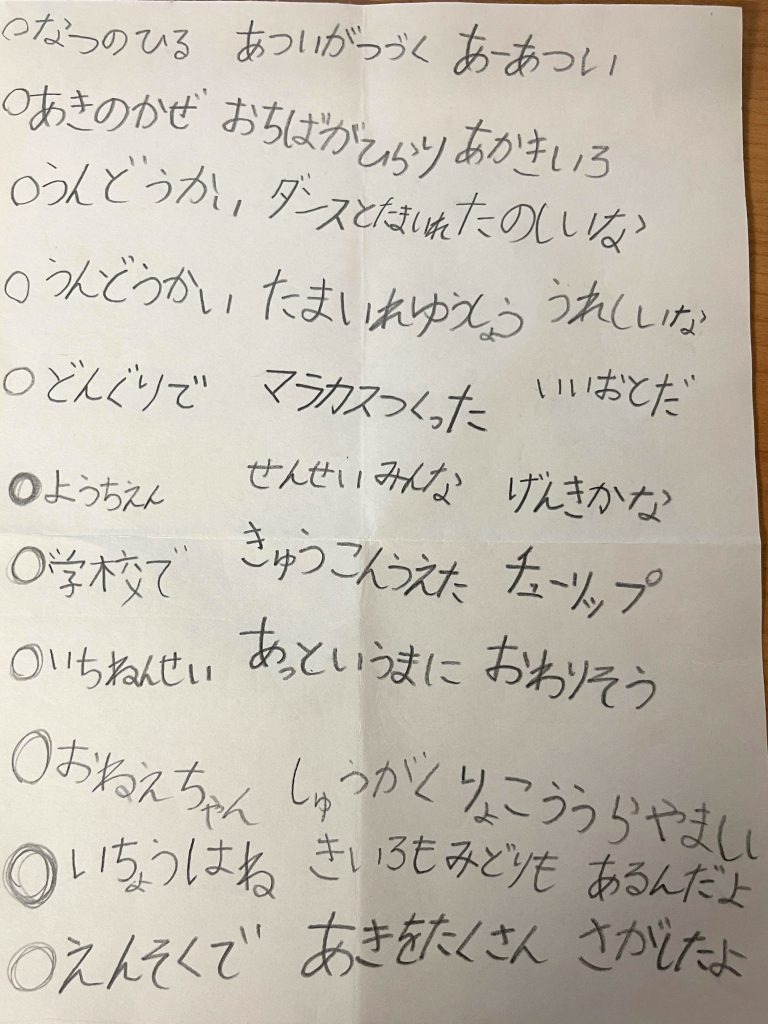 ○なつのひる あついがつづく あーあつい
○あきのかぜ おちばがひらり あかきいろ
○うんどうかい ダンスとたまいれ たのしいな
○うんどうかい たまいれゆうしょう うれしいな
○どんぐりで マラカスつくった いいおとだ
○ようちえん せんせいみんな げんきかな
○学校で きゅうこんうえた チューリップ
○いちねんせい あっというまに おわりそう
○おねえちゃん しゅうがくりょこううらやましい
○いちょうはね きいろもみどりも あるんだよ
○えんそくで あきをたくさん さがしたよ